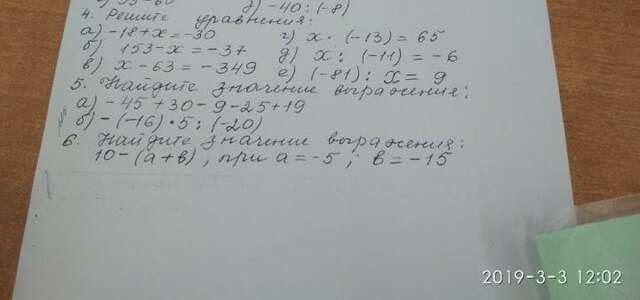 д) -40 : (-8)
4. Решите уравнения:
а) -18+х=-30 г) х · (-13) = 65
б) 153-х = -37 д) х : (-11) = -6
в) х - 63 = -349 е) (-81) : х = 9
5. Найдите значение выражения:
а) -45+30-9-25+19
б) -(-16)·5 : (-20)
6. Найдите значение выражения:
10-(а+в), при а=-5; в=-15
2019-3-3 12:02